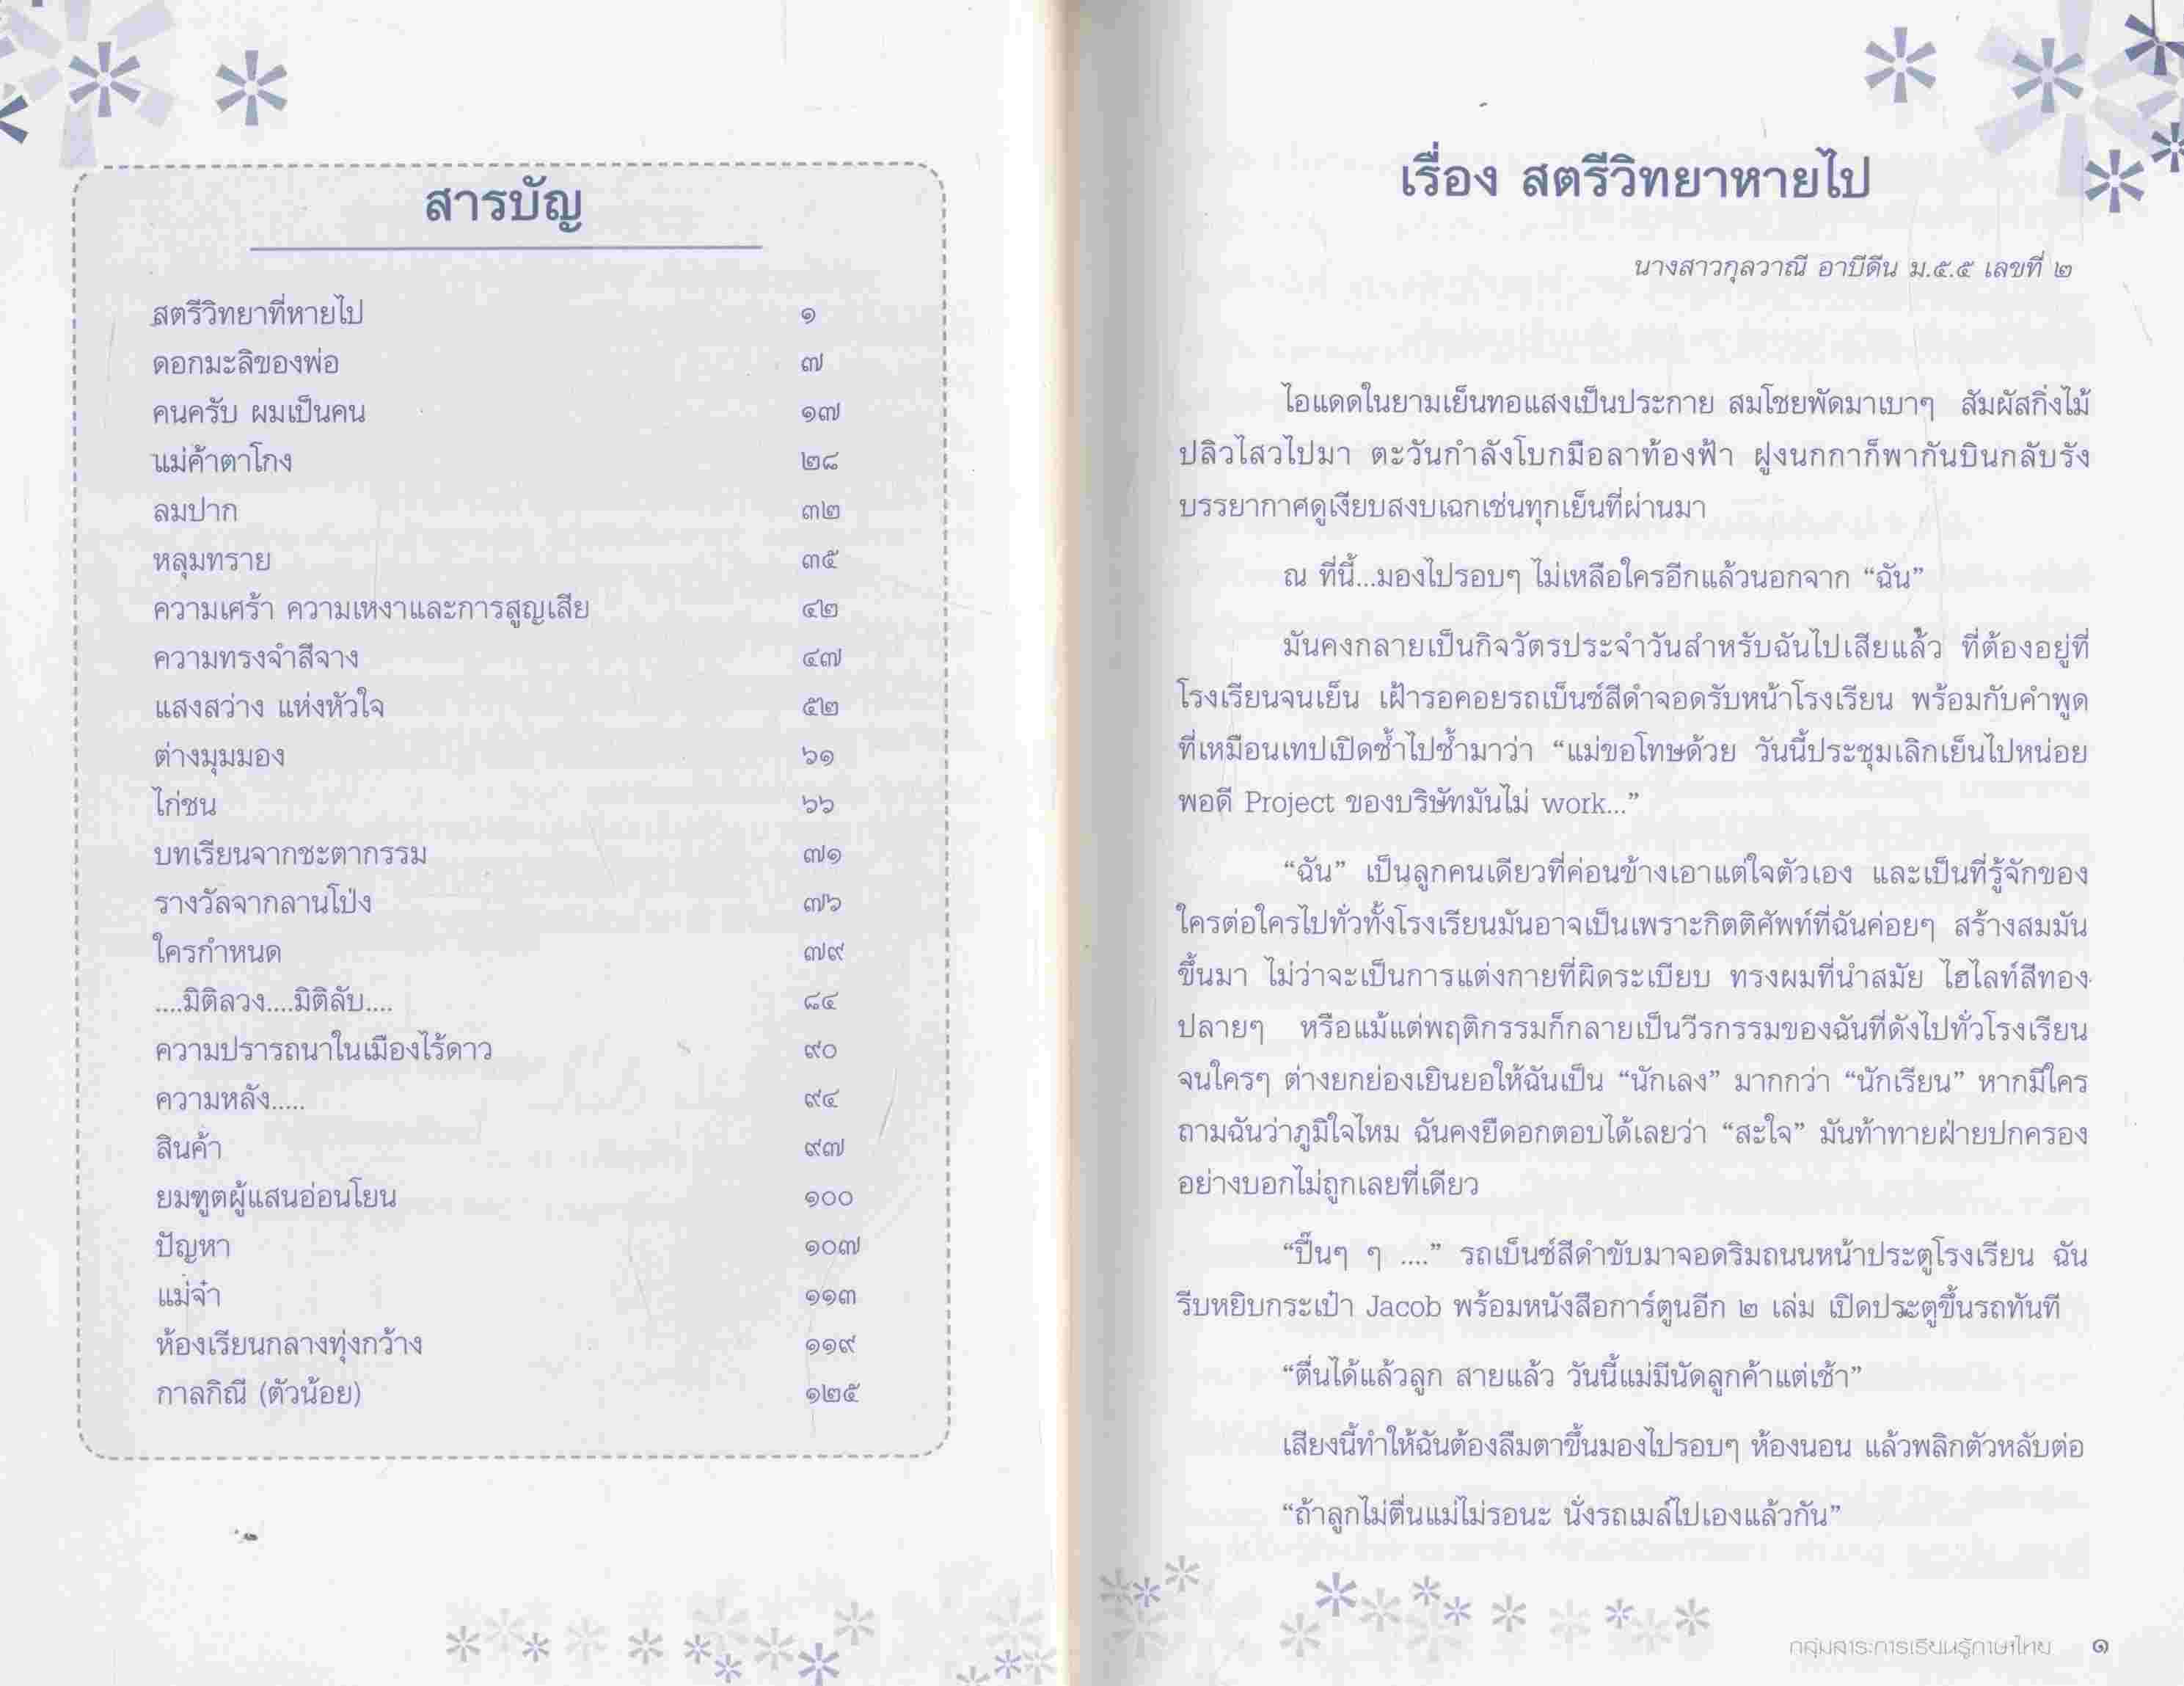 สารบัญ
สตรีวิทยาที่หายไป ๑
ดอกมะลิของพ่อ ๗
คนครับ ผมเป็นคน ๑๗
แม่ค้าตาโกง ๒๘
ลมปาก ๓๒
หลุมทราย ๓๕
ความเศร้า ความเหงาและการสูญเสีย ๔๒
ความทรงจำสีจาง ๔๗
แสงสว่าง แห่งหัวใจ ๕๒
ต่างมุมมอง ๖๑
ไก่ชน ๖๖
บทเรียนจากชะตากรรม ๗๑
รางวัลจากลานโป่ง ๗๖
ใครกำหนด ๗๙
....มิติลวง....มิติลับ.... ๘๔
ความปรารถนาในเมืองไร้ดาว ๙๐
ความหลัง..... ๙๔
สินค้า ๙๗
ยมฑูตผู้แสนอ่อนโยน ๑๐๐
ปัญหา ๑๐๗
แม่จ๋า ๑๑๓
ห้องเรียนกลางทุ่งกว้าง ๑๑๙
กาลกิณี (ตัวน้อย) ๑๒๕
เรื่อง สตรีวิทยาหายไป
นางสาวกุลวาณี อาบีดีน ม.๕.๕ เลขที่ ๒
ไอแดดในยามเย็นทอแสงเป็นประกาย สมโชยพัดมาเบาๆ สัมผัสกิ่งไม้
ปลิวไสวไปมา ตะวันกำลังโบกมือลาท้องฟ้า ฝูงนกกาก็พากันบินกลับรัง
บรรยากาศดูเงียบสงบเฉกเช่นทุกเย็นที่ผ่านมา
ณ ที่นี้...มองไปรอบๆ ไม่เหลือใครอีกแล้วนอกจาก “ฉัน”
มันคงกลายเป็นกิจวัตรประจำวันสำหรับฉันไปเสียแล้ว ที่ต้องอยู่ที่
โรงเรียนจนเย็น เฝ้ารอคอยรถเบ็นซ์สีดำจอดรับหน้าโรงเรียน พร้อมกับคำพูด
ที่เหมือนเทปเปิดซ้ำไปซ้ำมาว่า “แม่ขอโทษด้วย วันนี้ประชุมเลิกเย็นไปหน่อย
พอดี Project ของบริษัทมันไม่ work...”
“ฉัน” เป็นลูกคนเดียวที่ค่อนข้างเอาแต่ใจตัวเอง และเป็นที่รู้จักของ
ใครต่อใครไปทั่วทั้งโรงเรียนมันอาจเป็นเพราะกิตติศัพท์ที่ฉันค่อยๆ สร้างสมมัน
ขึ้นมา ไม่ว่าจะเป็นการแต่งกายที่ผิดระเบียบ ทรงผมที่นำสมัย ไฮไลท์สีทอง
ปลายๆ หรือแม้แต่พฤติกรรมก็กลายเป็นวีรกรรมของฉันที่ดังไปทั่วโรงเรียน
จนใครๆ ต่างยกย่องเยินยอให้ฉันเป็น “นักเลง” มากกว่า “นักเรียน” หากมีใคร
ถามฉันว่าภูมิใจไหม ฉันคงยืดอกตอบได้เลยว่า “สะใจ” มันท้าทายฝ่ายปกครอง
อย่างบอกไม่ถูกเลยที่เดียว
“ปี๊นๆ ๆ ....” รถเบ็นซ์สีดำขับมาจอดริมถนนหน้าประตูโรงเรียน ฉัน
รีบหยิบกระเป๋า Jacob พร้อมหนังสือการ์ตูนอีก ๒ เล่ม เปิดประตูขึ้นรถทันที
“ตื่นได้แล้วลูก สายแล้ว วันนี้แม่มีนัดลูกค้าแต่เช้า”
เสียงนี้ทำให้ฉันต้องลืมตาขึ้นมองไปรอบๆ ห้องนอน แล้วพลิกตัวหลับต่อ
“ถ้าลูกไม่ตื่นแม่ไม่รอนะ นั่งรถเมล์ไปเองแล้วกัน”
กลุ่มสาระการเรียนรู้ภาษาไทย ๑